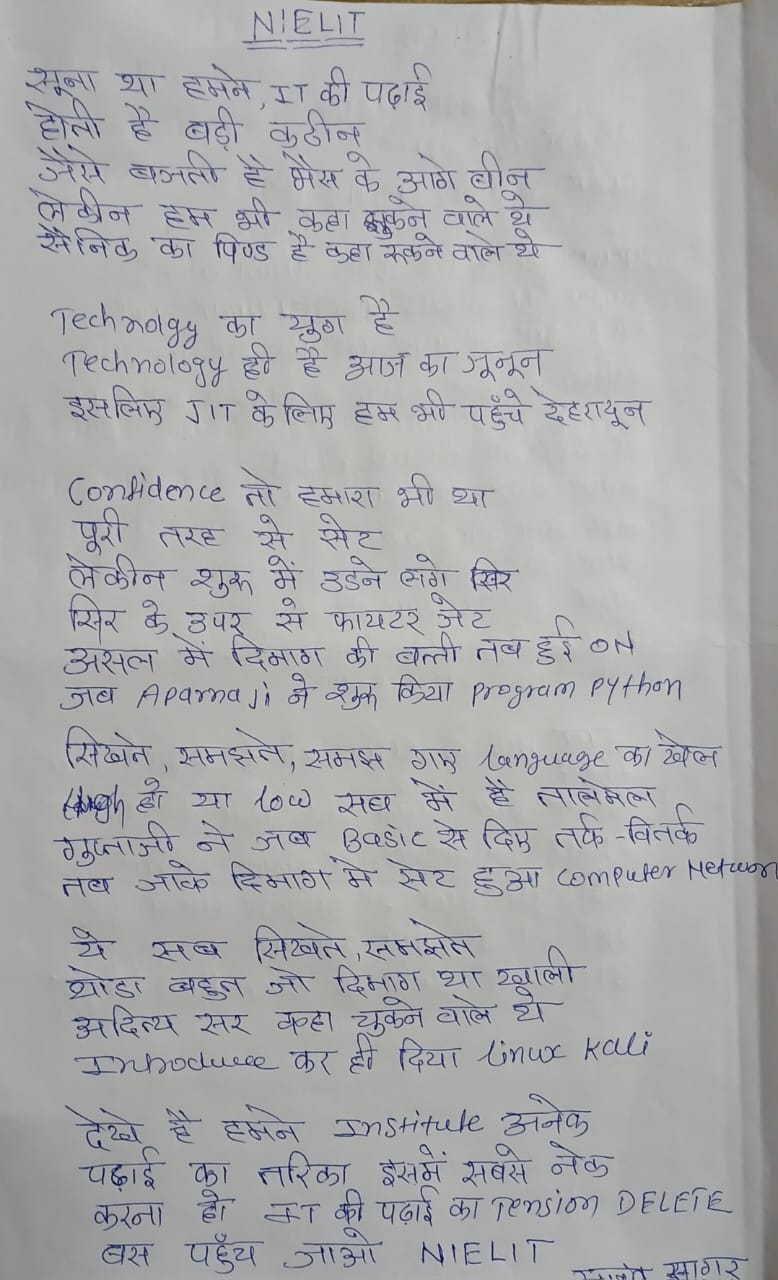 NIELIT
सूना था हमने, IT की पढाई
होती है बड़ी कठीन
जैसे बजती है भैस के आगे बीन
लेकीन हम भी कहा झुकने वाले थे
सैनिक का पिण्ड है कहा रूकने वाले थे
Technolgy का युग है
Technology ही है आज का जूनून
इसलिए IT के लिए हम भी पहुँचे देहरादून
Confidence तो हमारा भी था
पूरी तरह से सेट
लेकीन शुरू में उडने लगे सिर
सिर के उपर से फायटर जेट
असल में दिमाग की बत्ती तब हुई ON
जब Aparna Ji ने शुरू किया program Python
सिखते, समझते, समझ गए language का खेल
High हो या low सब में है तालमेल
गुप्ताजी ने जब Basic से दिए तर्क-वितर्क
तब जाके दिमाग मे सेट हुआ computer Networ
ये सब सिखते, समझते
थोडा बहुत जो दिमाग था खाली
अदित्य सर कहा चुकने वाले थे
Introduce कर ही दिया linux Kali
देखे है हमने Institute अनेक
पढ़ाई का तरिका इसमें सबसे नेक
करना हो IT की पढ़ाई का Tension DELETE
बस पहुँच जाओ NIELIT
सागर